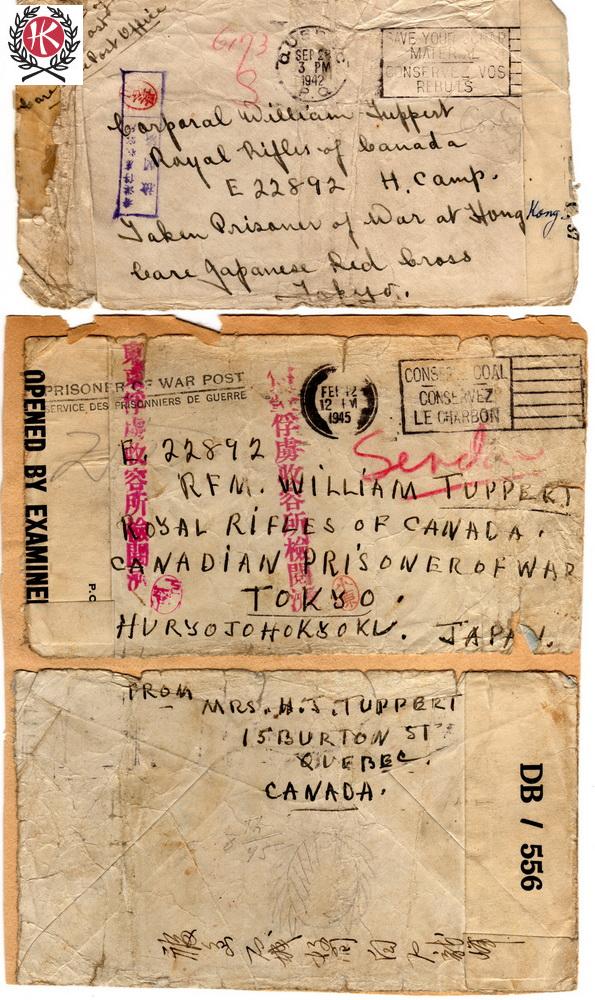 HK
Post Office
6173
QUEBEC
SEP 28
3 PM
1942
P.Q.
SAVE YOUR SCRAP
MATERIAL
CONSERVEZ VOS
REBUTS
Corporal William Tuppert
Royal Rifles of Canada
E 22892 H. Camp.
Taken Prisoner of War at Hong Kong.
Care Japanese Red Cross
Tokyo.
OPENED BY EXAMINER
P.C
PRISONER OF WAR POST
SERVICE DES PRISONNIERS DE GUERRE
FEB 12
12 PM
1945
CONSERVE COAL
CONSERVEZ
LE CHARBON
俘虜収容所検閲済
俘虜収容所検閲済
Sendai
E. 22892
RFM. WILLIAM TUPPERT
ROYAL RIFLES OF CANADA.
CANADIAN PRISONER OF WAR
TOKYO.
HURYOJOHOKYOKU. JAPAN.
FROM
MRS. H.J. TUPPERT
15 BURTON ST
QUEBEC.
CANADA.
DB / 556